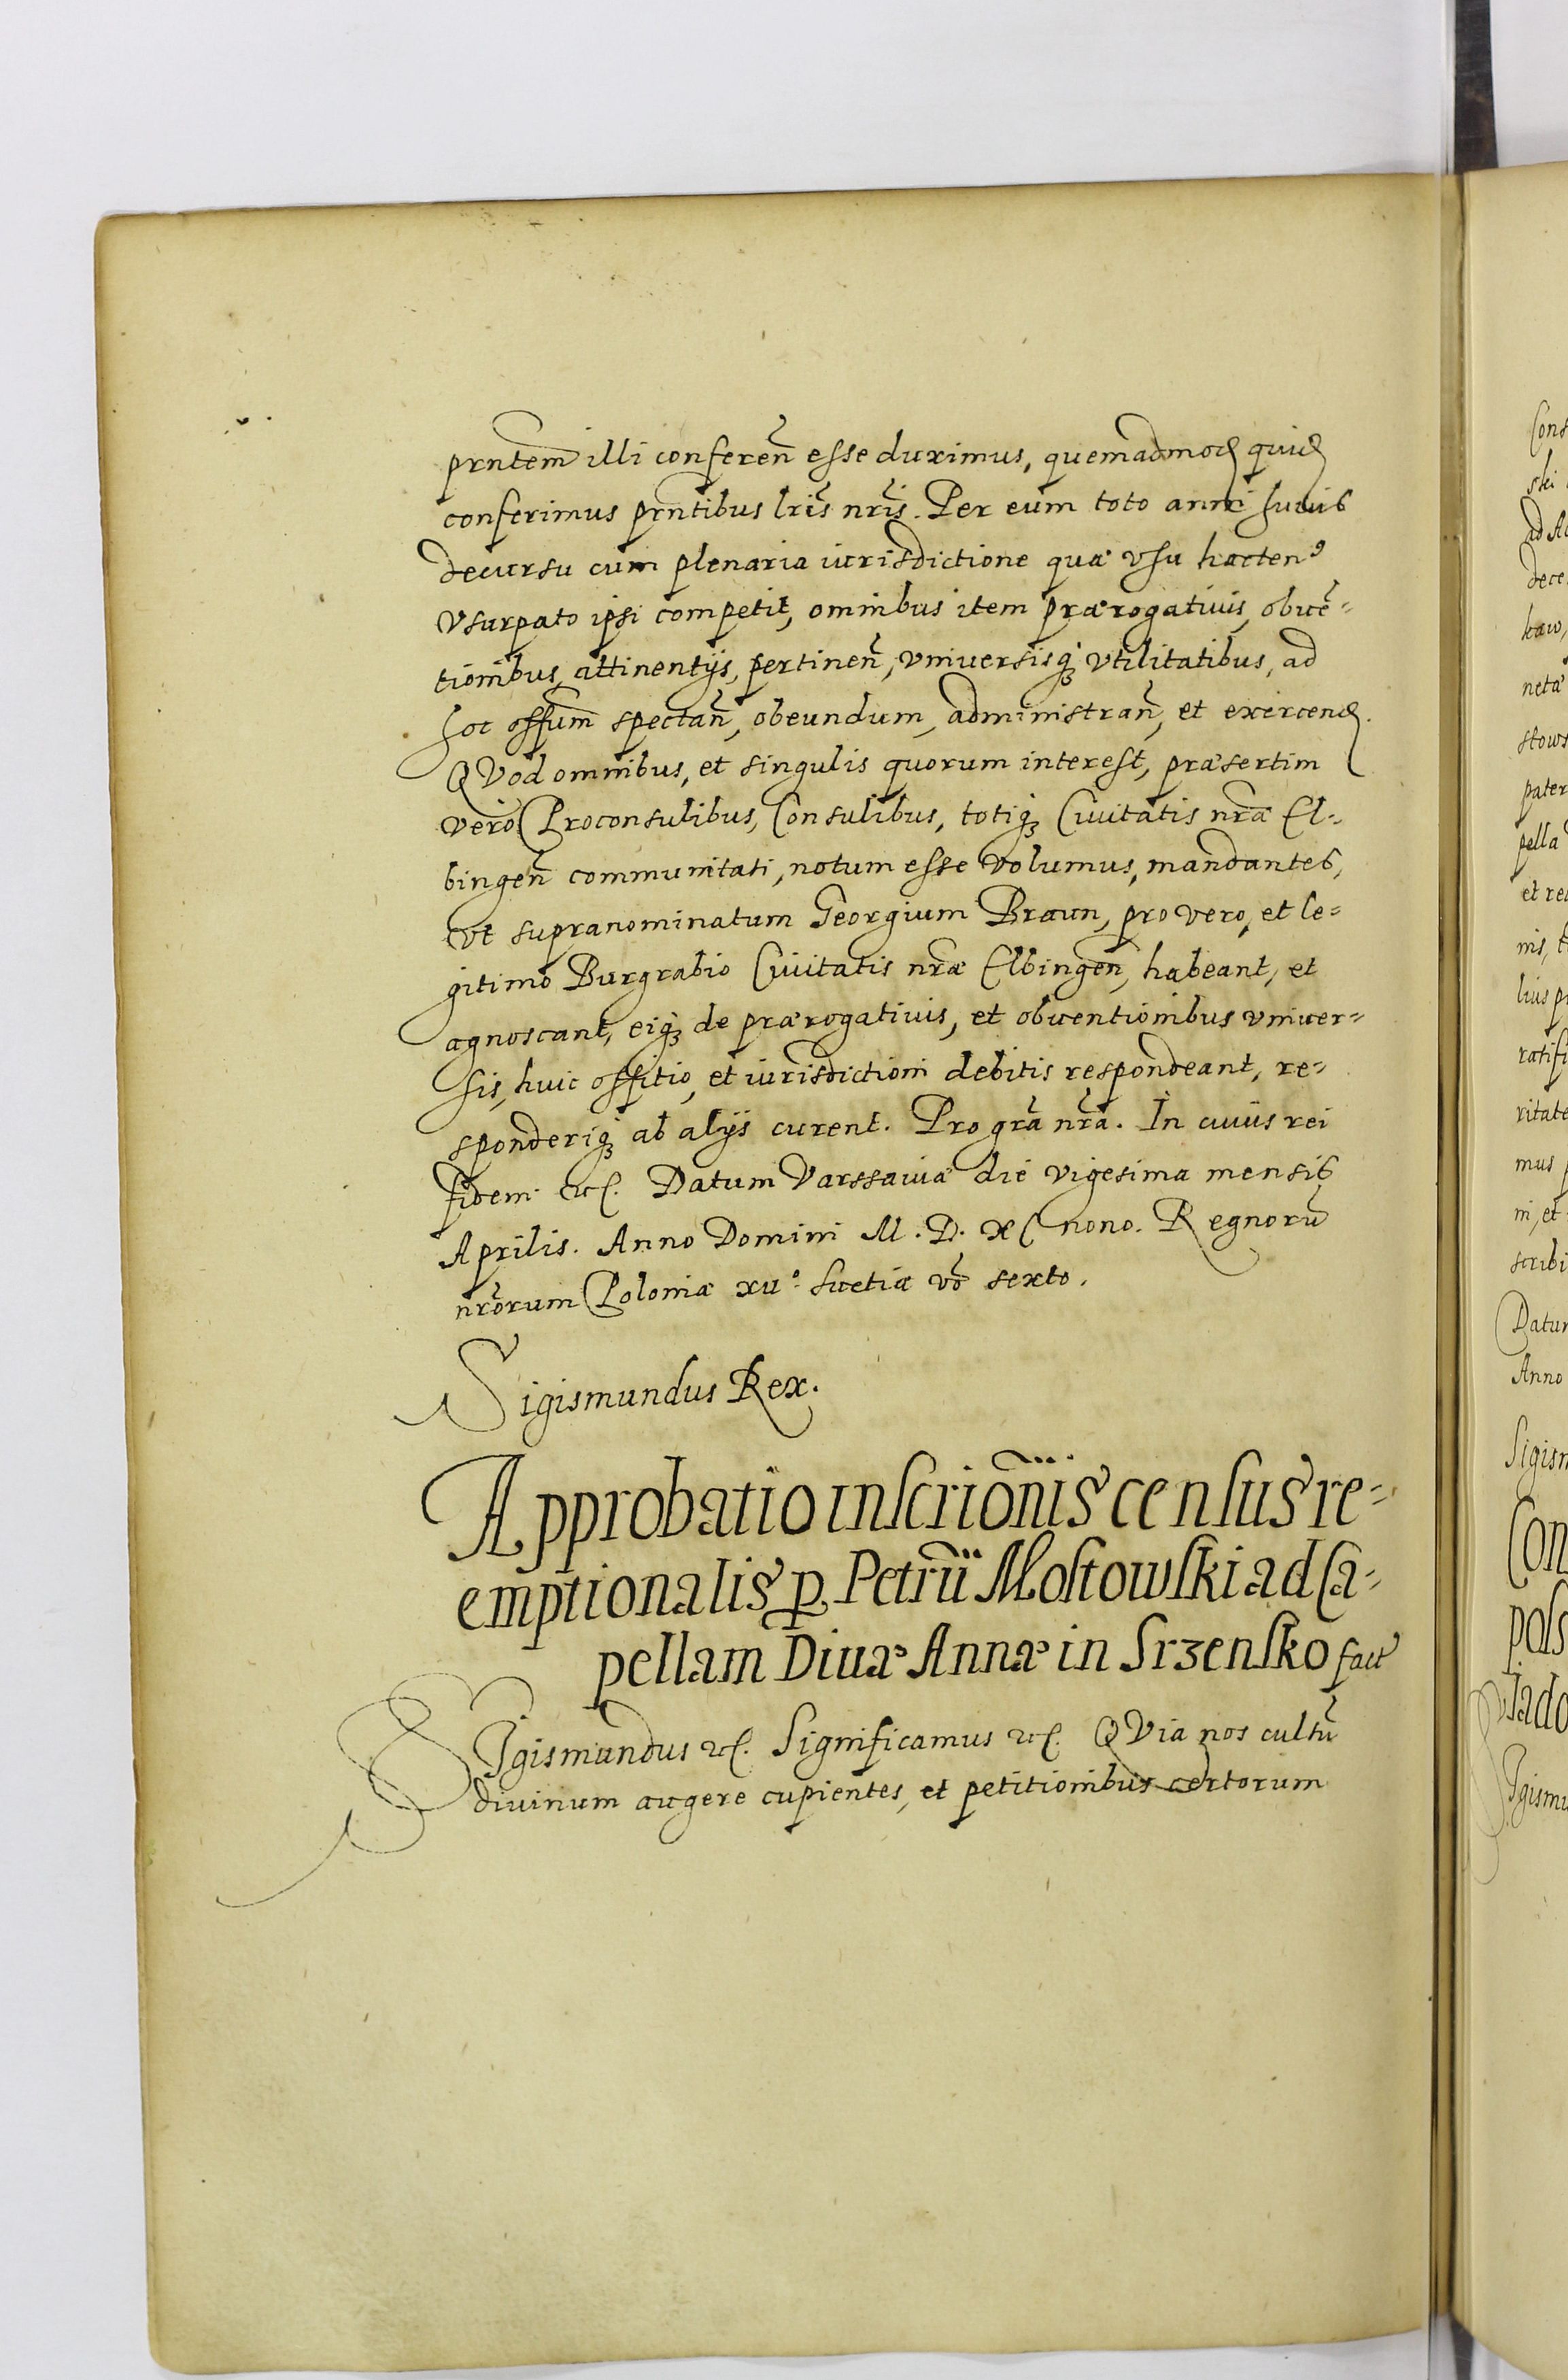 prntem illi conferen̄ esse duximus, quemadmod quid
conferimus prn̄tibus lrīs nrīs. Per eum toto anni huius
decursu cum plenaria iurisdictione quæ vsu hacten9
vsurpato ipsi competit, omnibus item prærogatiuis, obuē=
tionibus, attinentijs, pertinen̄, vniuersisq3 vtilitatibus, ad
hoc offūm spectan̄, obeundum, administran̄, et exercend.
QVod omnibus, et singulis quorum interest, præsertim
vero Proconsulibus, Consulibus, totiq3 Ciuitatis nrǣ El=
bingen̄ communitati, notum esse volumus, mandantes,
vt supranominatum Georgium Braun, pro vero, et le=
gitimo Burgrabio Ciuitatis nræ Elbingen̄, habeant, et
agnoscant, eiq3 de prærogatiuis, et obuentionibus vniuer=
sis, huic offitio, et iurisdictioni debitis respondeant, re=
sponderiq3 ab alijs curent. Pro grā nrā. In cuius rei
fidem etc. Datum Varssauiæ die vigesima mensis
Aprilis. Anno Domini M. D. XC nono. Regnorū
nrōrum Poloniæ xuº. Suetiæ vō sexto.
Sigismundus Rex.
Approbatio inscriōnis census re=
emptionalis ꝑ Petrū Mostowski ad Ca=
pellam Diuæ Annæ in Srzensko fact
SIgismundus etc. Significamus etc. QVia nos cultū
diuinum augere cupientes, et petitionibus certorum
Cons
ski
ad A
dece
kaw,
netæ
stows
pater
pella
et re
nis, t
lius p
ratifi
ritate
mus p
ni, et
scribi
Datum
Anno
Sigism
Con
pols
Iado
SIgismu